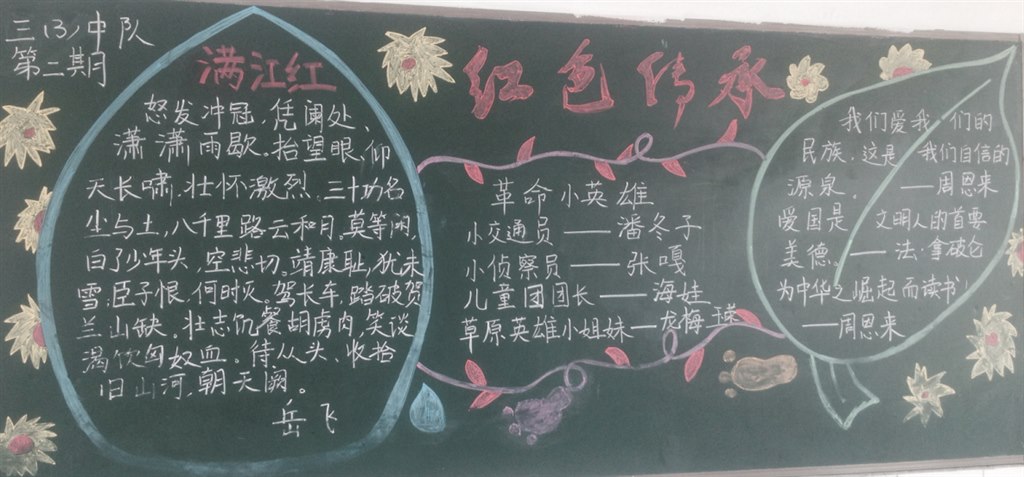 三(3)中队
第二期
满江红
怒发冲冠,凭阑处、
潇潇雨歇。抬望眼,仰
天长啸,壮怀激烈。三十功名
尘与土,八千里路云和月。莫等闲,
白了少年头,空悲切。靖康耻,犹未
雪,臣子恨,何时灭。驾长车,踏破贺
兰山缺。壮志饥餐胡虏肉,笑谈
渴饮匈奴血。待从头、收拾
旧山河,朝天阙。
岳飞
红色传承
革命小英雄
小交通员——潘冬子
小侦察员——张嘎
儿童团团长——海娃
草原英雄小姐妹—龙梅
我们爱我们的
民族,这是我们自信的
源泉。——周恩来
爱国是文明人的首要
美德。——法·拿破仑
为中华之崛起而读书
——周恩来